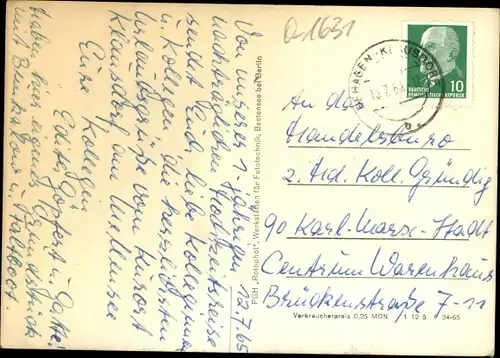 Q1631
Von unserer 1-jährigen 12.7.65
nachträglichen Hochzeitsreise
sendet Euch, liebe Kolleginnen
u. Kollegen die herzlichsten
Urlaubsgrüße vom Kurort
Klausdorf am Mellensee
Eure
Kollegin
Edith Göppert u. Gatte
haben hier eigenes Grundstück
mit Bungalow u. Faltboot.
PGH „Rotophot“, Werkstätten für Fototechnik, Bestensee bei Berlin
REHAGEN-KLAUSDORF
10
DEUTSCHE
DEMOKRATISCHE REPUBLIK
An das
Handelsbüro
z. Hd. Koll. Gründig
90 Karl-Marx-Stadt
Centrum Warenhaus
Brückenstraße 7-11
Verbraucherpreis 0,25 MDN 1 12 5 P 34-65